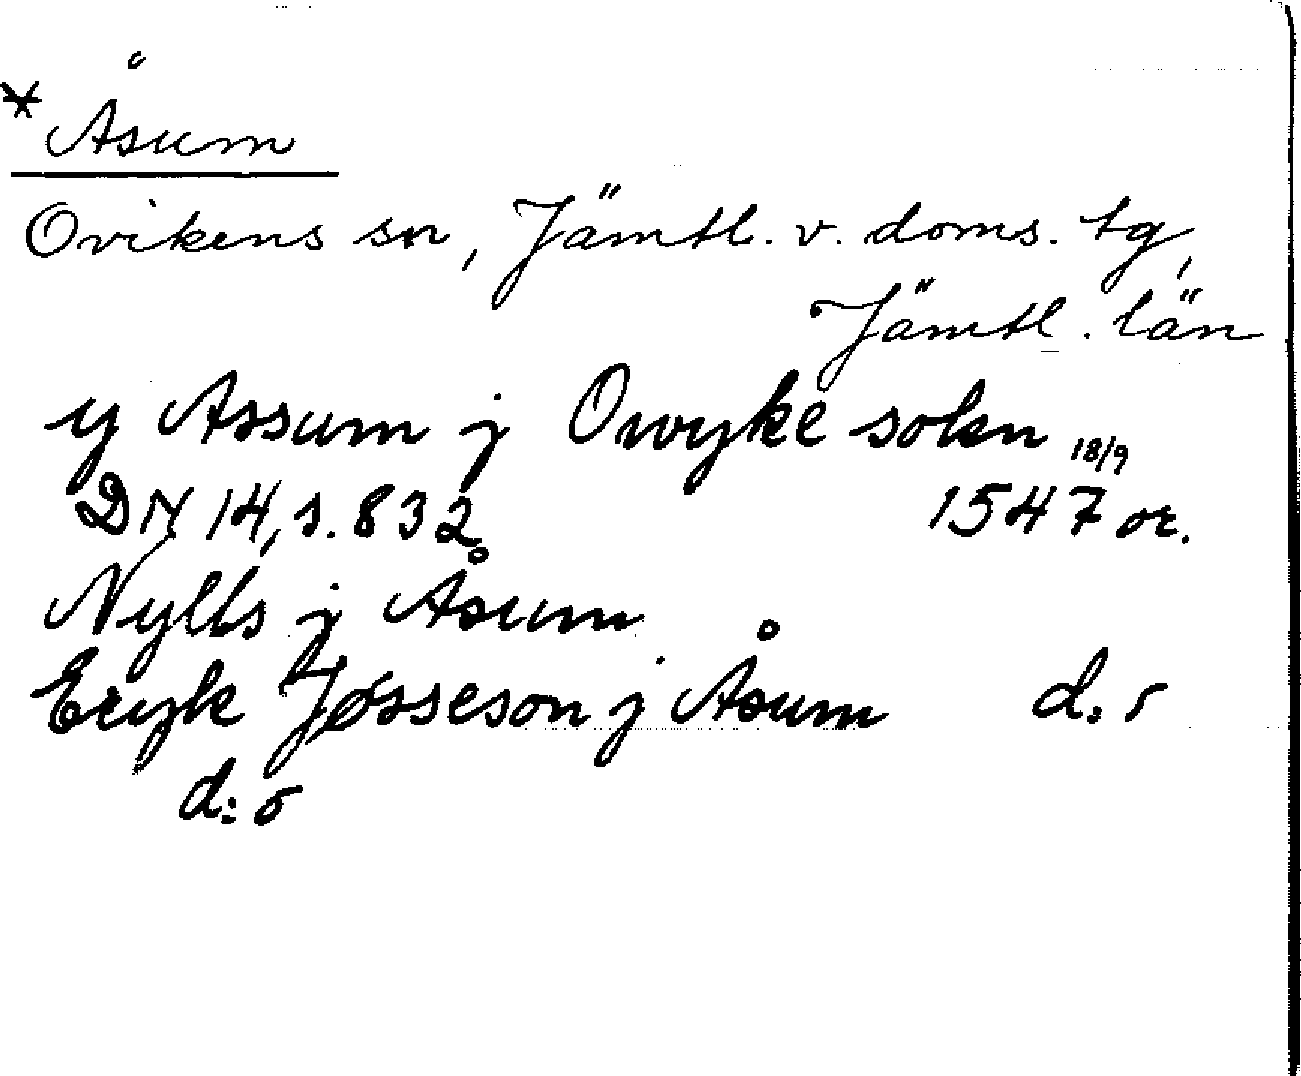 * Åsum
Ovikens sn, Jämtl. v. doms. tg,
Jämtl. län
y Assum j Owyke sokn 18/9
DN 14, s. 832 1547 or.
Nylls j Åsum
Eryk Jøsseson j Åsum d:o
d:o